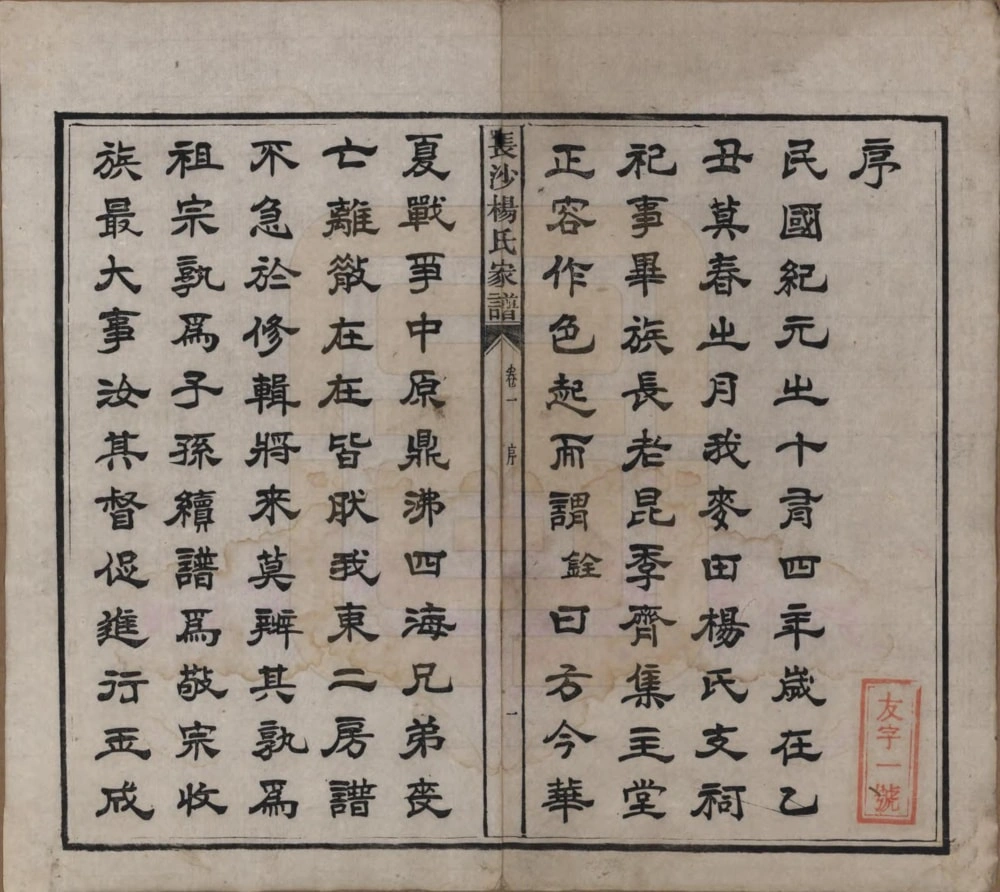 序
民國紀元之十有四年歲在乙
丑莫春之月我麥田楊氏支祠
祀事畢族長老昆季齊集主堂
正容作色起而謂銓曰方今華
長沙楊氏家譜 卷一 序 一
夏戰爭中原鼎沸四海兄弟喪
亡離散在在皆肰我東二房譜
不急於修輯將來莫辨其孰爲
祖宗孰爲子孫續譜爲敬宗收
族最大事汝其督促進行玉成
友字一號